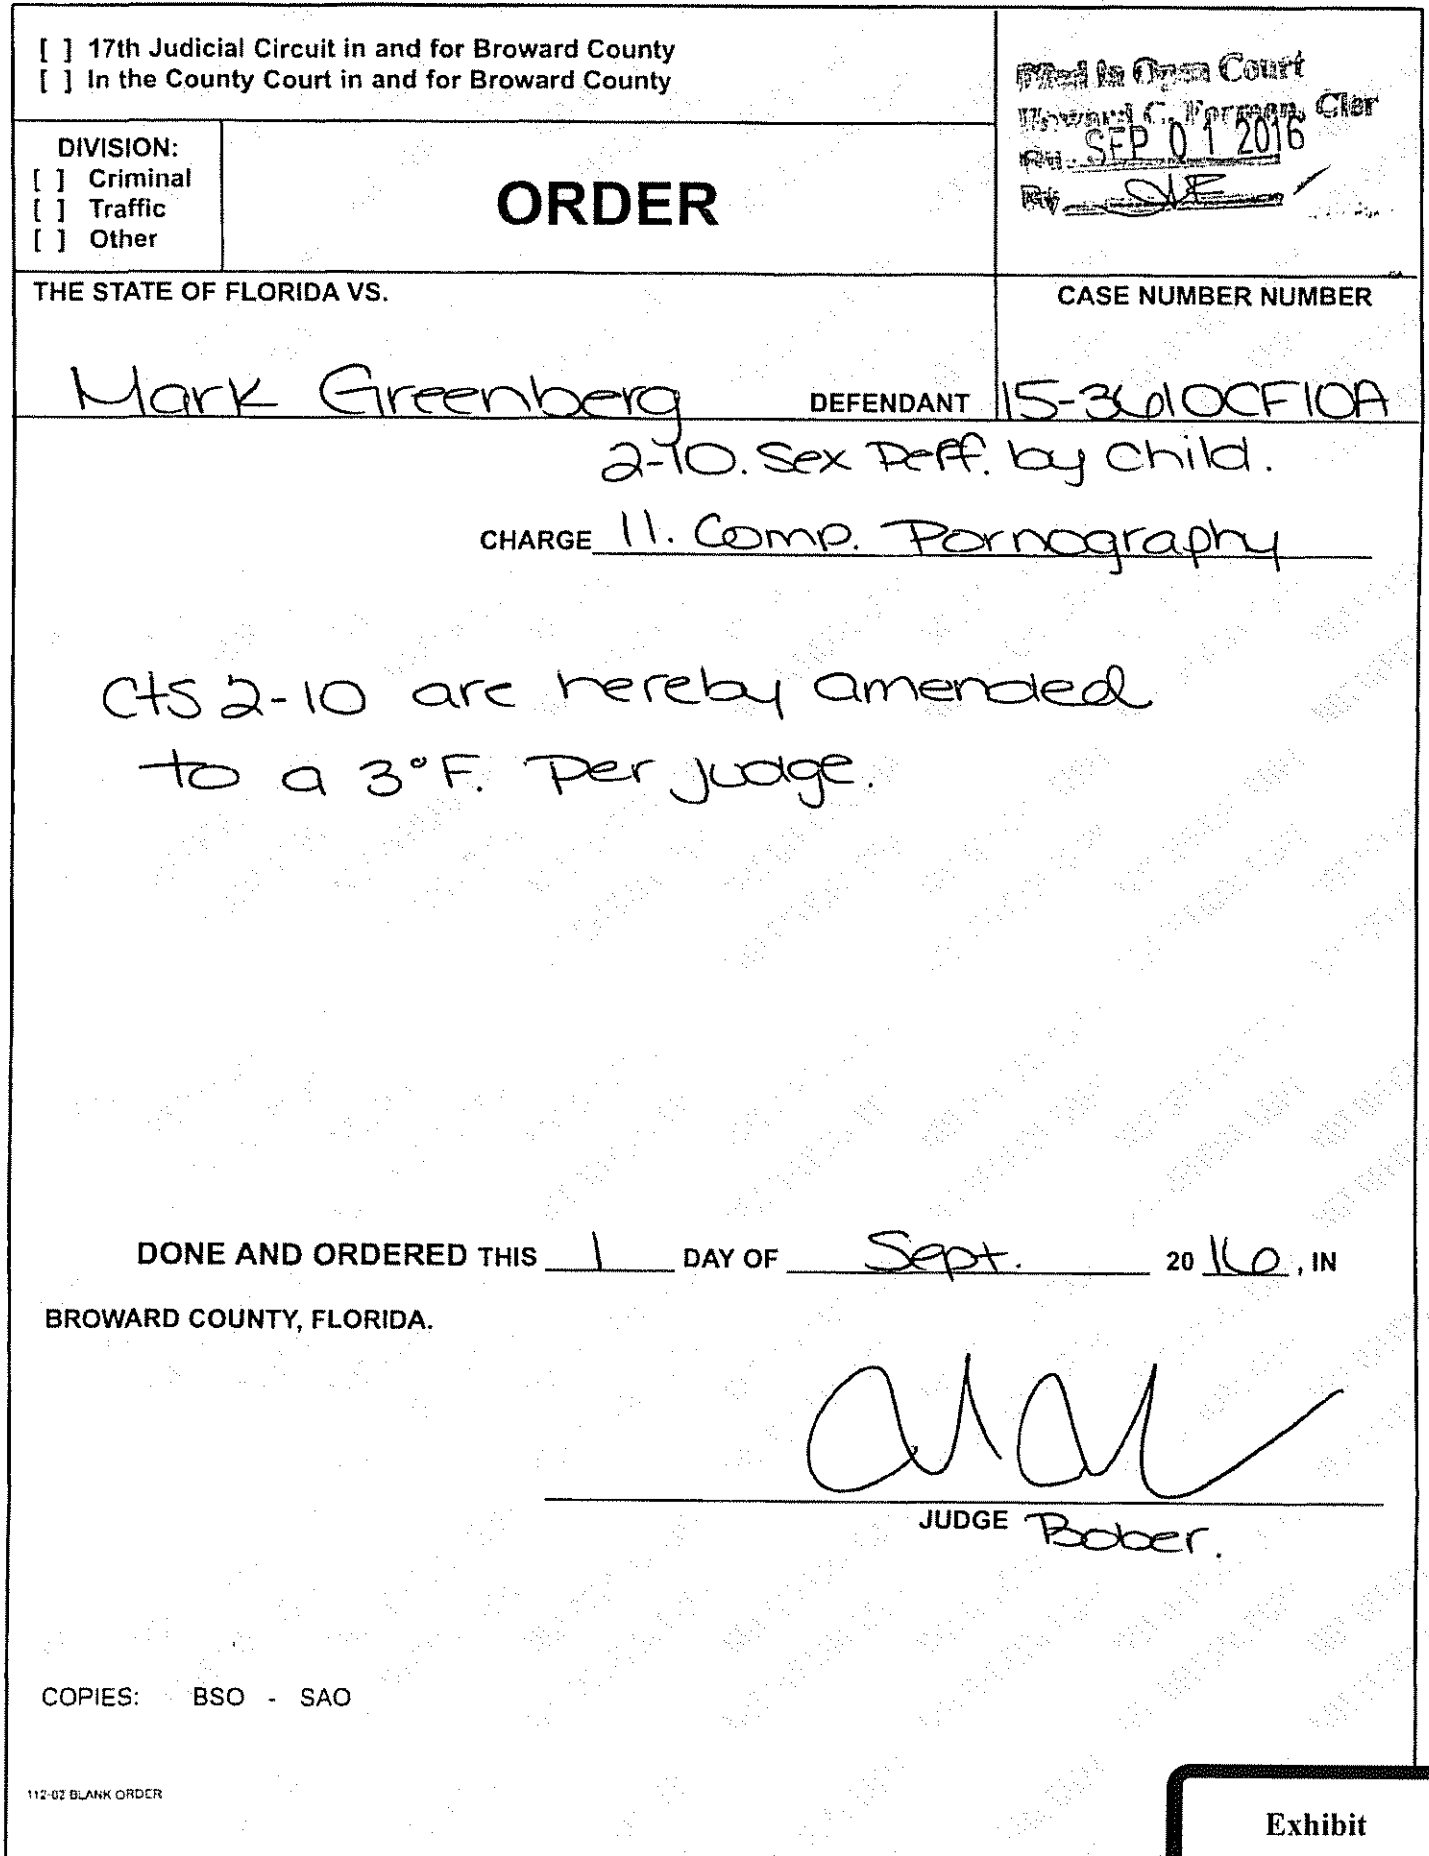 [ ] 17th Judicial Circuit in and for Broward County
[ ] In the County Court in and for Broward County
Filed In Open Court
Howard C. Forman, Cler
SEP 01 2016
By
DIVISION:
[ ] Criminal
[ ] Traffic
[ ] Other
ORDER
THE STATE OF FLORIDA VS.
CASE NUMBER NUMBER
Mark Greenberg DEFENDANT
15-3610CF10A
2-10. Sex Perf. by Child.
CHARGE 11. Comp. Pornography
Cts 2-10 are hereby amended
to a 3°F. Per judge.
DONE AND ORDERED THIS 1 DAY OF Sept. 2016, IN
BROWARD COUNTY, FLORIDA.
JUDGE Bober.
COPIES: BSO - SAO
112-02 BLANK ORDER
Exhibit